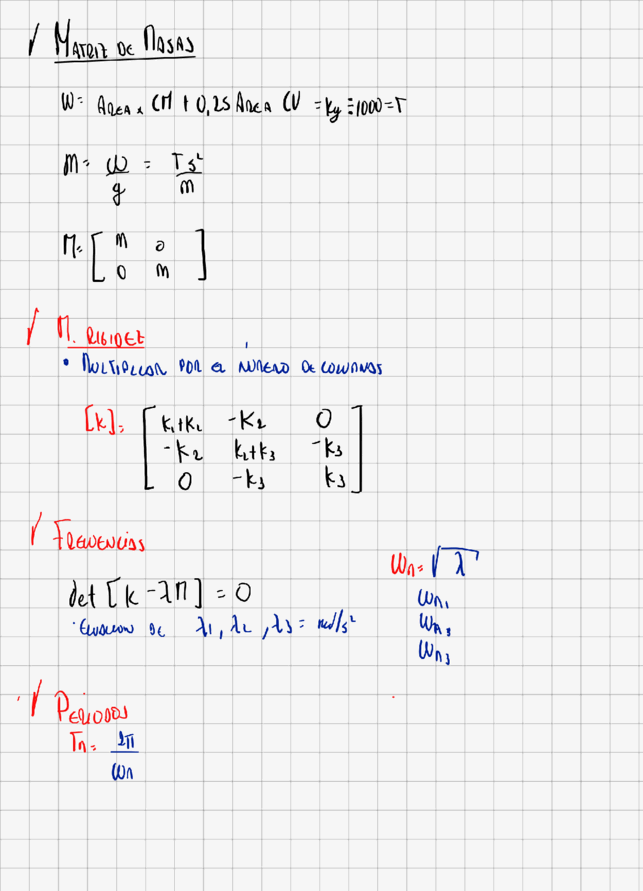 ✓ MATRIZ DE MASAS
W= AREA x CM + 0,25 AREA CV = Kg ÷ 1000 = T
M= W/g = T s²/m
M= [ m 0
0 m ]
✓ M. RIGIDEZ
• MULTIPLICAR POR EL NÚMERO DE COLUMNAS
[K]= [ K₁+K₂ -K₂ 0
-K₂ K₂+K₃ -K₃
0 -K₃ K₃ ]
✓ FRECUENCIAS
Wn= √λ
det [K - λM] = 0
Wn₁
• ECUACION DE λ₁, λ₂, λ₃ = rad/s²
Wn₃
✓ PERIODOS
Tn= 2π/Wn